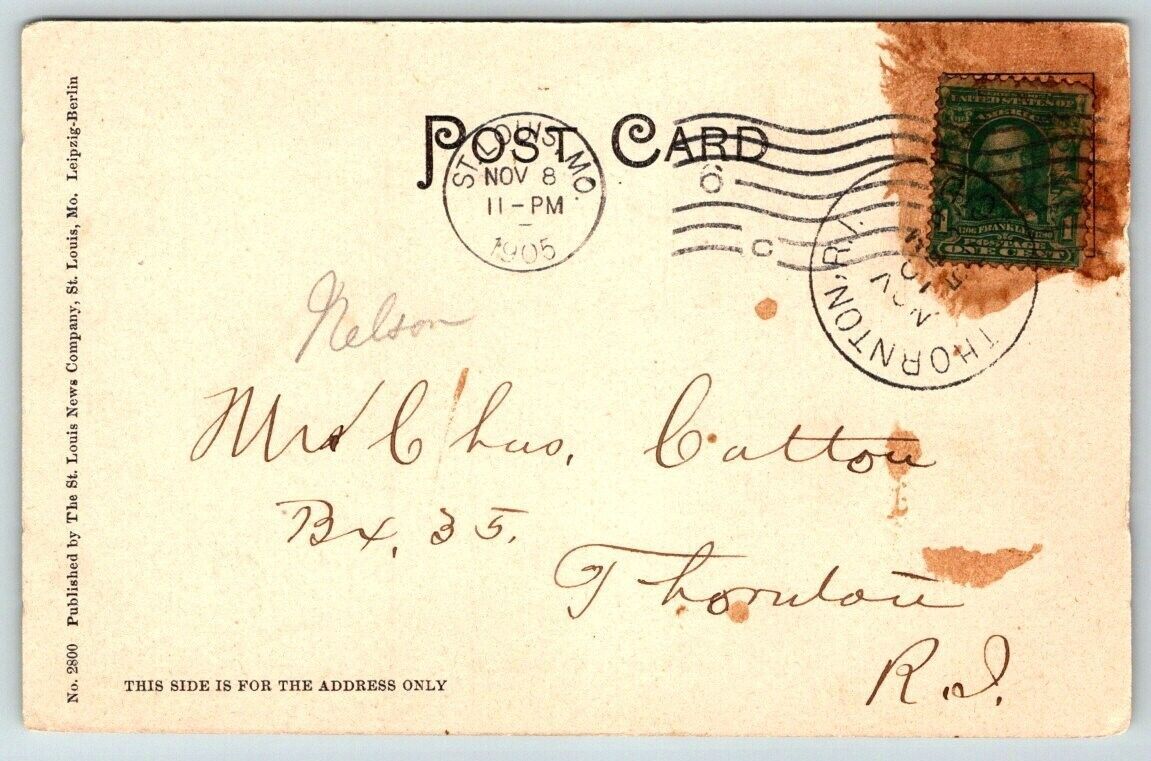 POST CARD
ST. LOUIS, MO.
NOV 8
11-PM
1905
UNITED STATES OF
AMERICA
1706 FRANKLIN 1790
1 POSTAGE 1
ONE CENT
THORNTON, R.I.
NOV
10
Nelson
Mrs Chas. Catton
Bx. 35.
Thornton
R.I.
THIS SIDE IS FOR THE ADDRESS ONLY
No. 2800 Published by The St. Louis News Company, St. Louis, Mo. Leipzig-Berlin